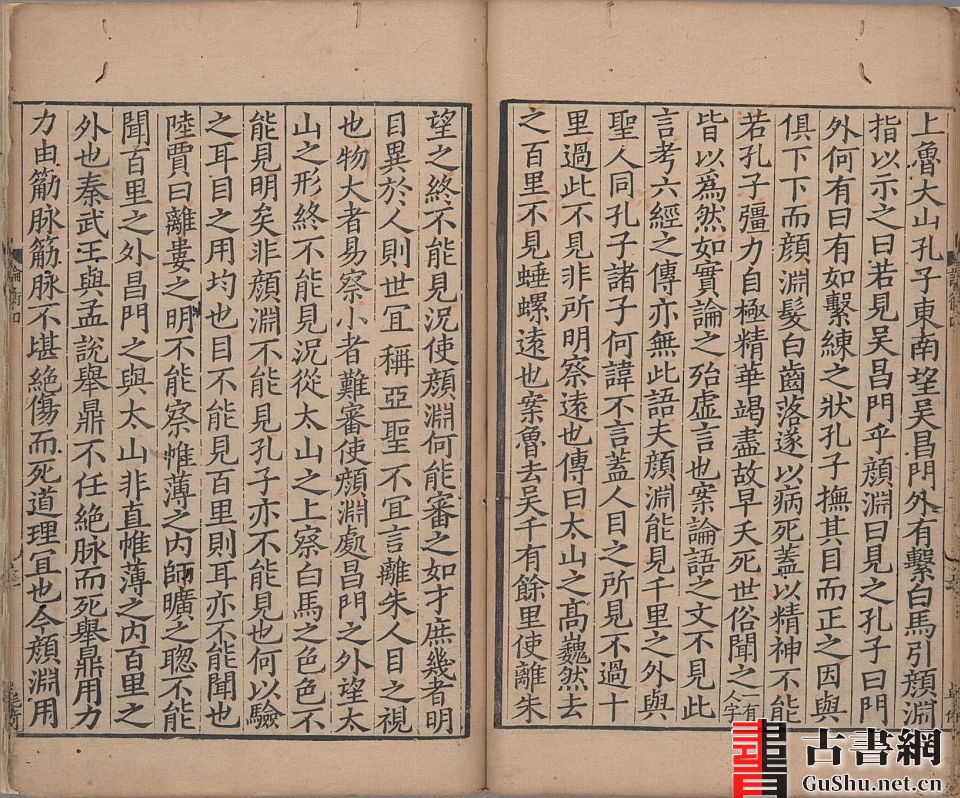 上魯大山孔子東南望吴昌門外有繫白馬引顔淵
指以示之曰若見吴昌門乎顔淵曰見之孔子曰門
外何有曰有如繫練之狀孔子撫其目而正之因與
俱下下而顔淵髮白齒落遂以病死蓋以精神不能
若孔子彊力自極精華竭盡故早夭死世俗聞之一有人字
皆以爲然如實論之殆虚言也案論語之文不見此
言考六經之傳亦無此語夫顔淵能見千里之外與
聖人同孔子諸子何諱不言蓋人目之所見不過十
里過此不見非所明察逺也傳曰太山之髙巍然去
之百里不見埵螺遠也案魯去吴千有餘里使離朱
望之終不能見況使顔淵何能審之如才庶幾者明
目異於人則世宜稱亞聖不宜言離朱人目之視
也物大者易察小者難審使顔淵處昌門之外望太
山之形終不能見況從太山之上察白馬之色色不
能見明矣非顔淵不能見孔子亦不能見也何以驗
之耳目之用均也目不能見百里則耳亦不能聞也
陸賈曰離婁之明不能察帷薄之内師曠之聰不能
聞百里之外昌門之與太山非直帷薄之内百里之
外也秦武王與孟說舉鼎不任絶脉而死舉鼎用力
力由筋脉筋脉不堪絶傷而死道理宜也今顔淵用
論衡四
古書網
GuShu.net.cn